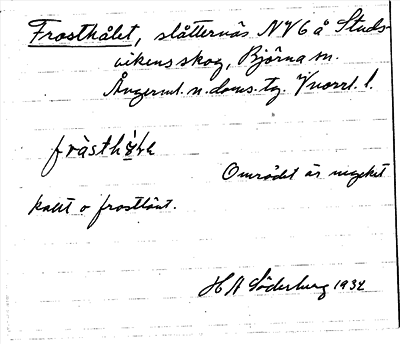 Frosthålet, slåtternäs NV6 å Studs-
vikens skog, Björna sn.
Ångerml. n. doms. tg. Vnorrl. l.
fràsthɷ̀ɫe
Området är mycket
kallt o frostlänt.
H A Söderberg 1934